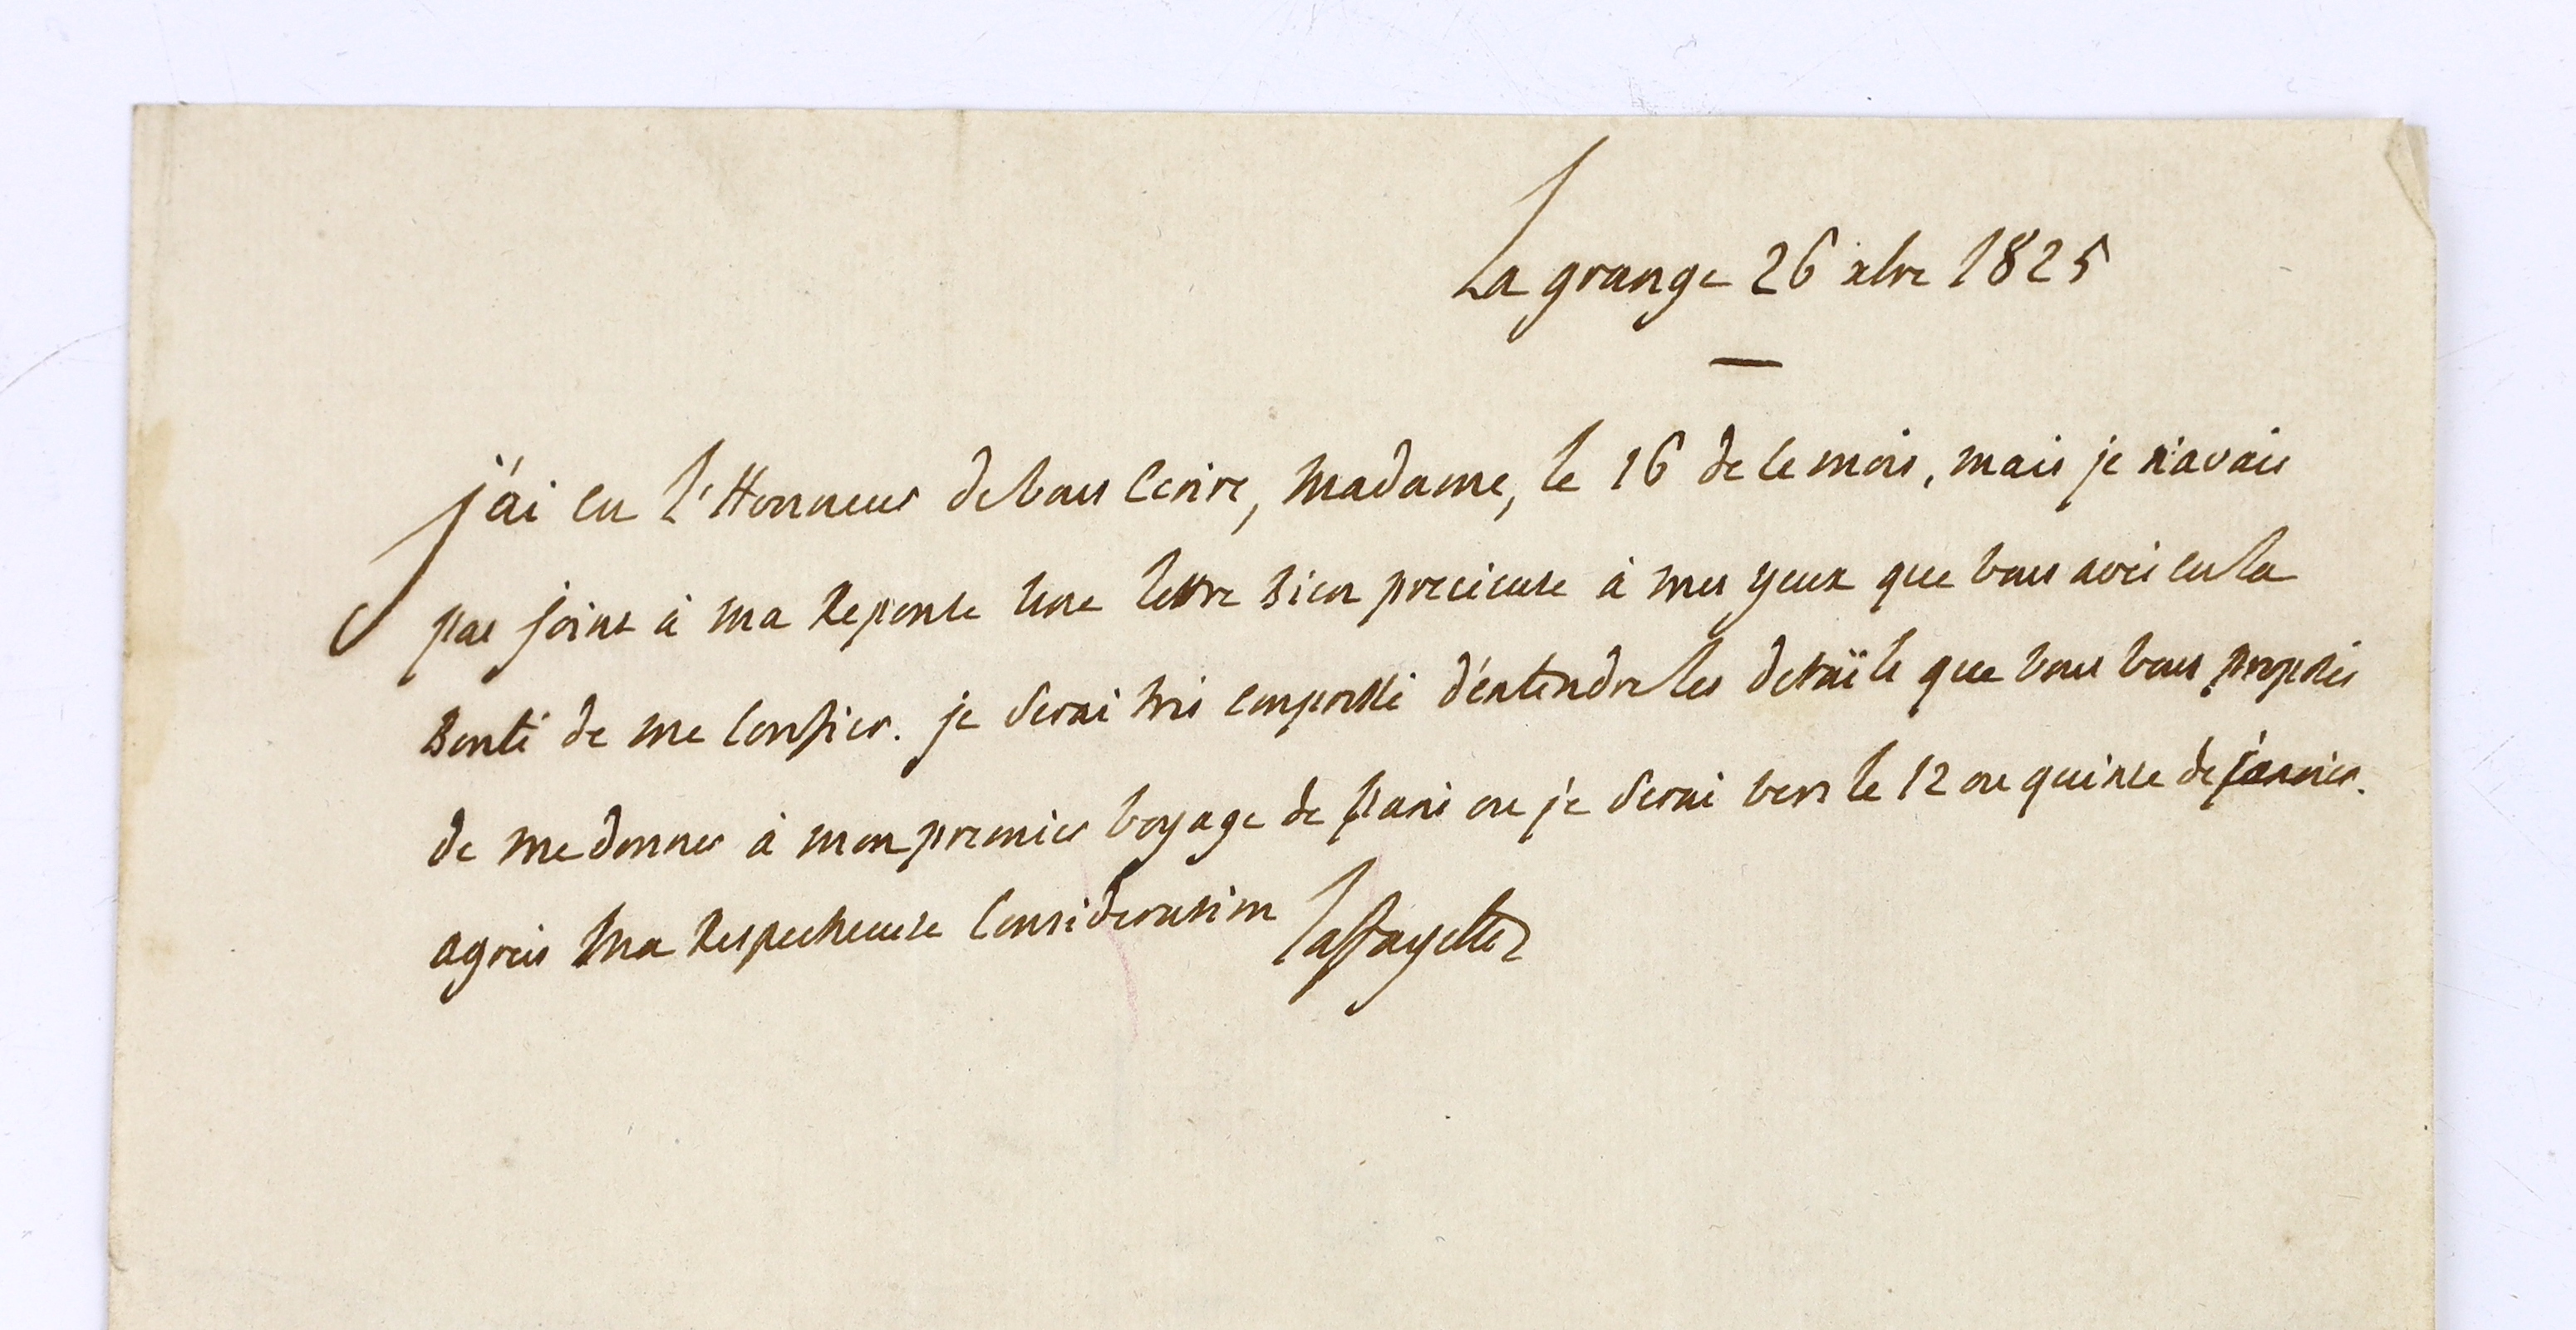 La grange 26 xbre 1825
—
j'ai eu l'Honneur de vous ecrire, Madame, le 16 de ce mois, mais je n'avais
pas joint à ma Reponse une lettre Bien precieuse à mes yeux que vous avéz eu la
Bonté de me confier. je serai très empressé d'entendre les detaïls que vous vous proposés
de me donner à mon premier voyage de Paris ou je serai vers le 12 ou quinze de janvier.
agréés ma Respectueuse Consideration Lafayette